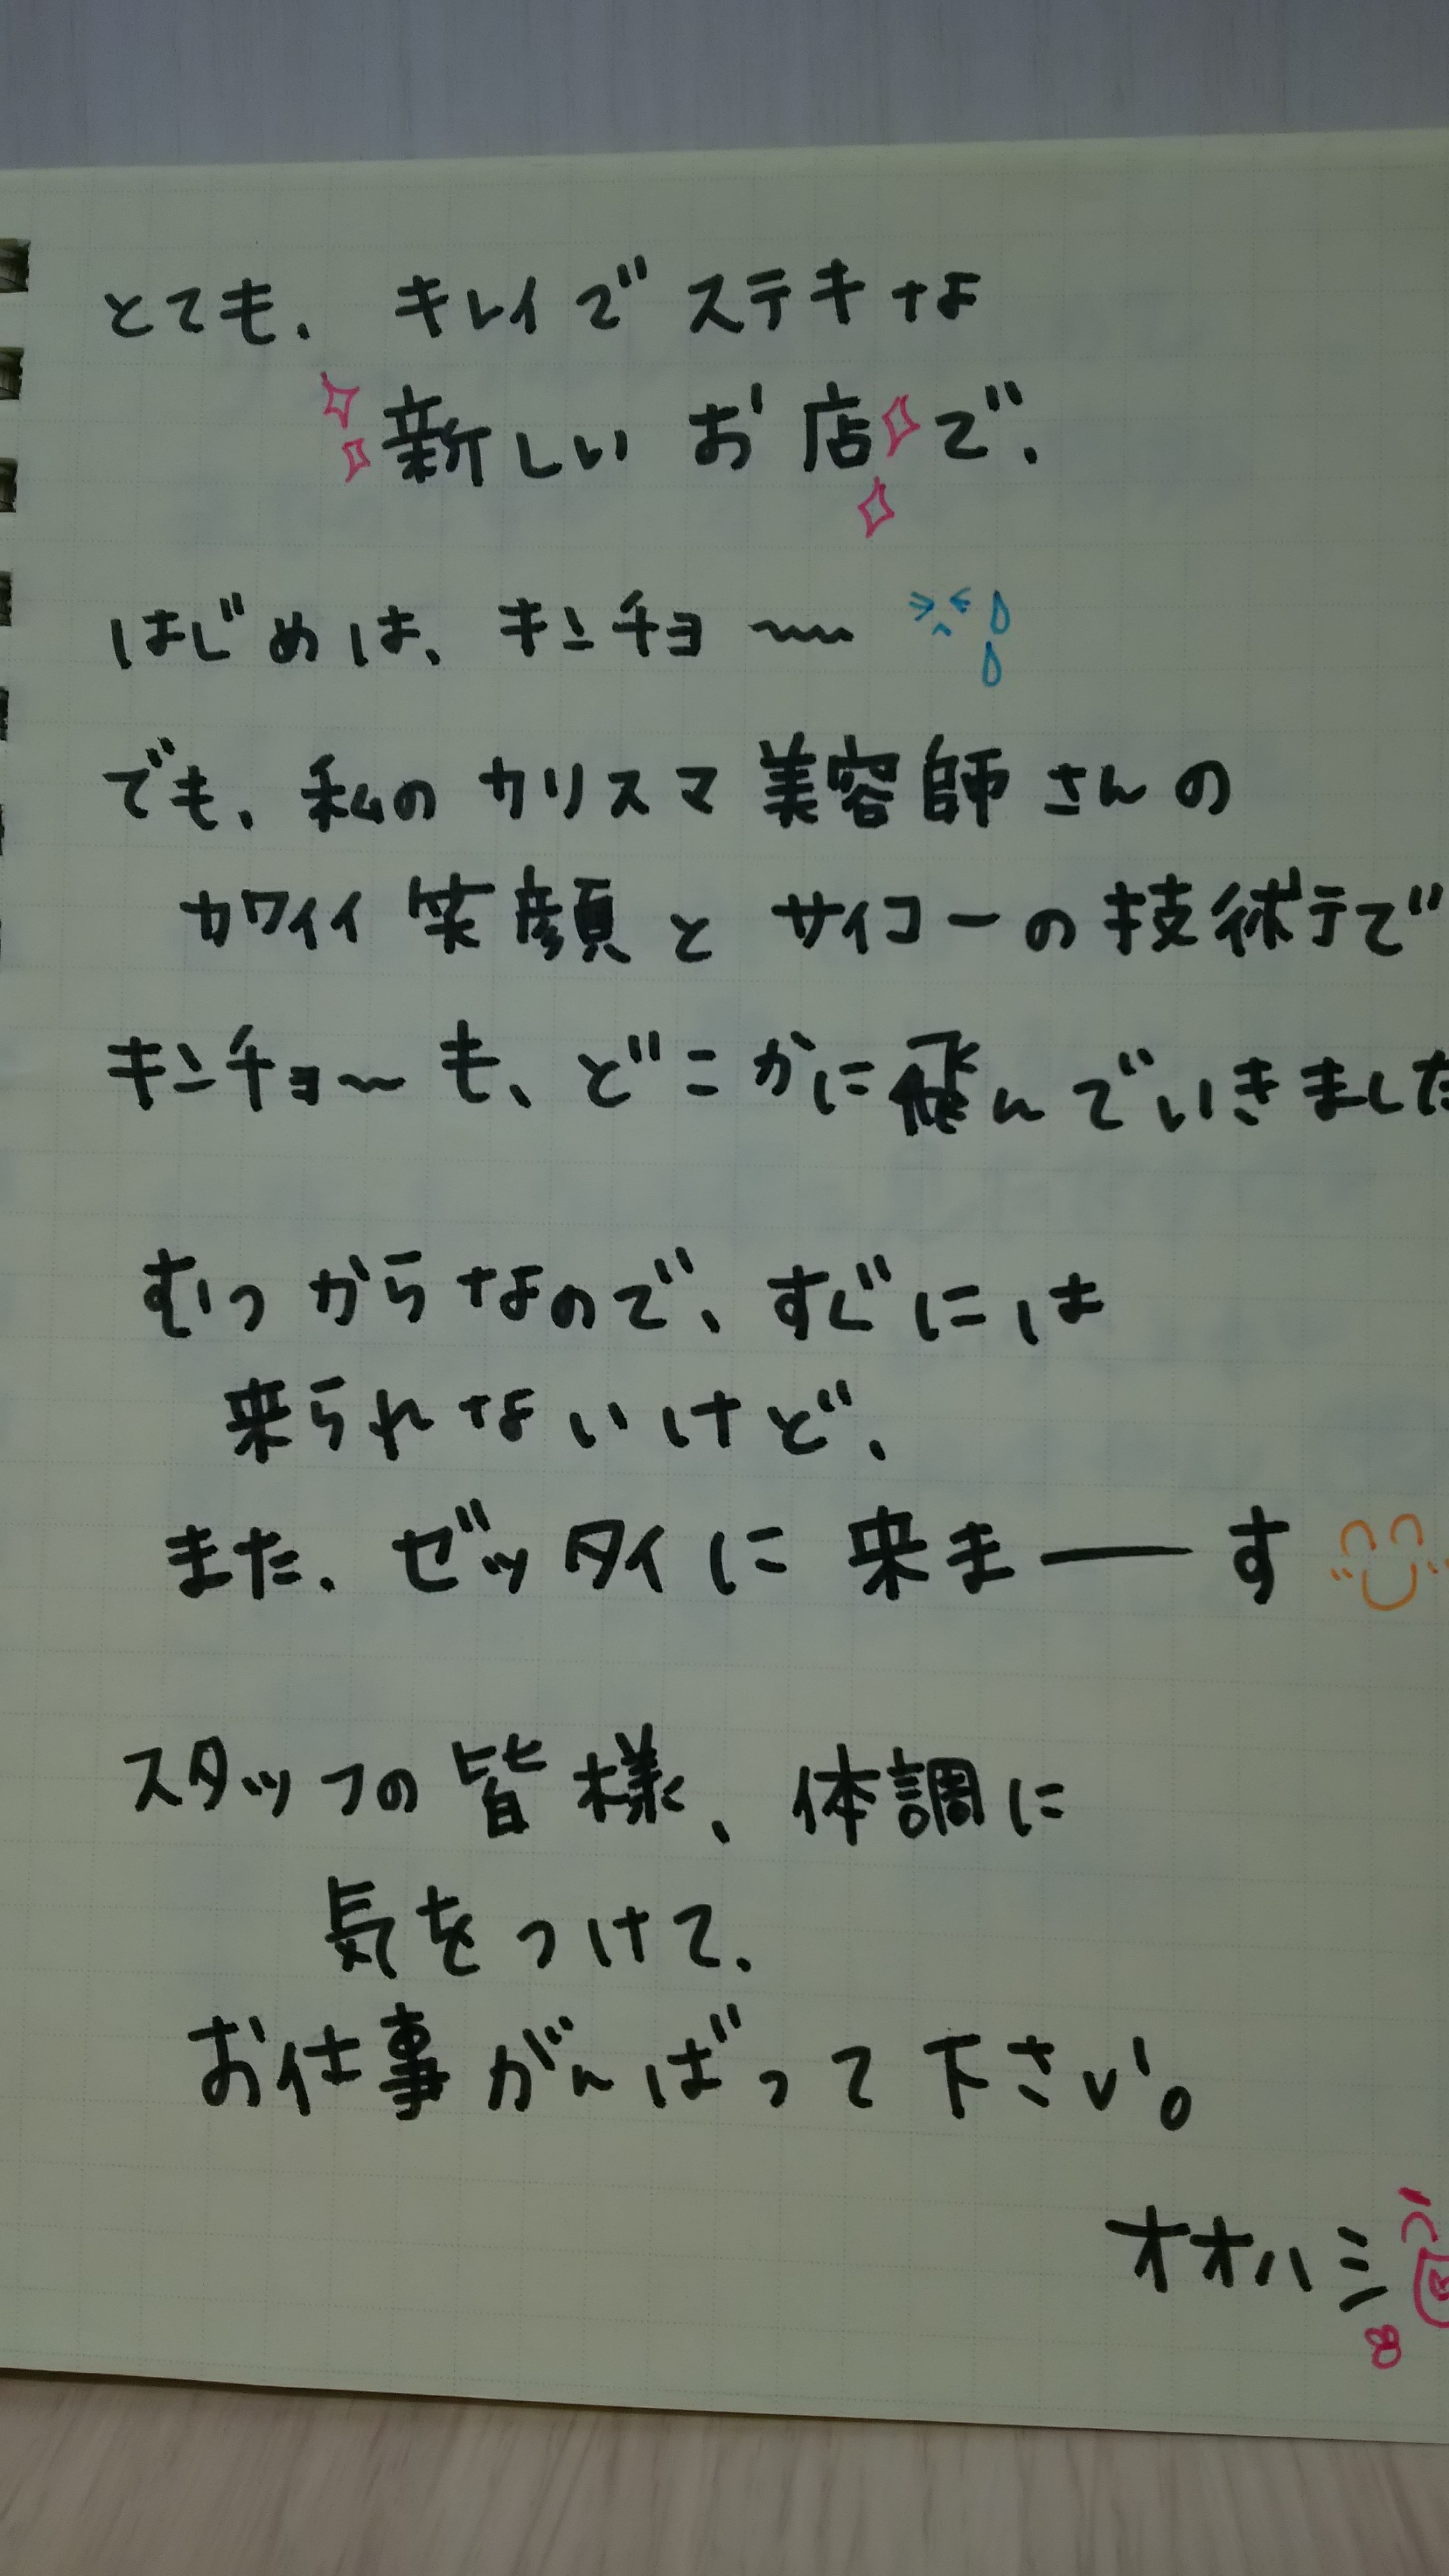 とても、キレイでステキな
新しいお店で、
はじめは、キンチョ〜〜
でも、私のカリスマ美容師さんの
カワイイ笑顔とサイコーの技術テで
キンチョ〜も、どこかに飛んでいきました
むつからなので、すぐには
来られないけど、
また、ゼッタイに来まーーす
スタッフの皆様、体調に
気をつけて、
お仕事がんばって下さい。
オオハシ